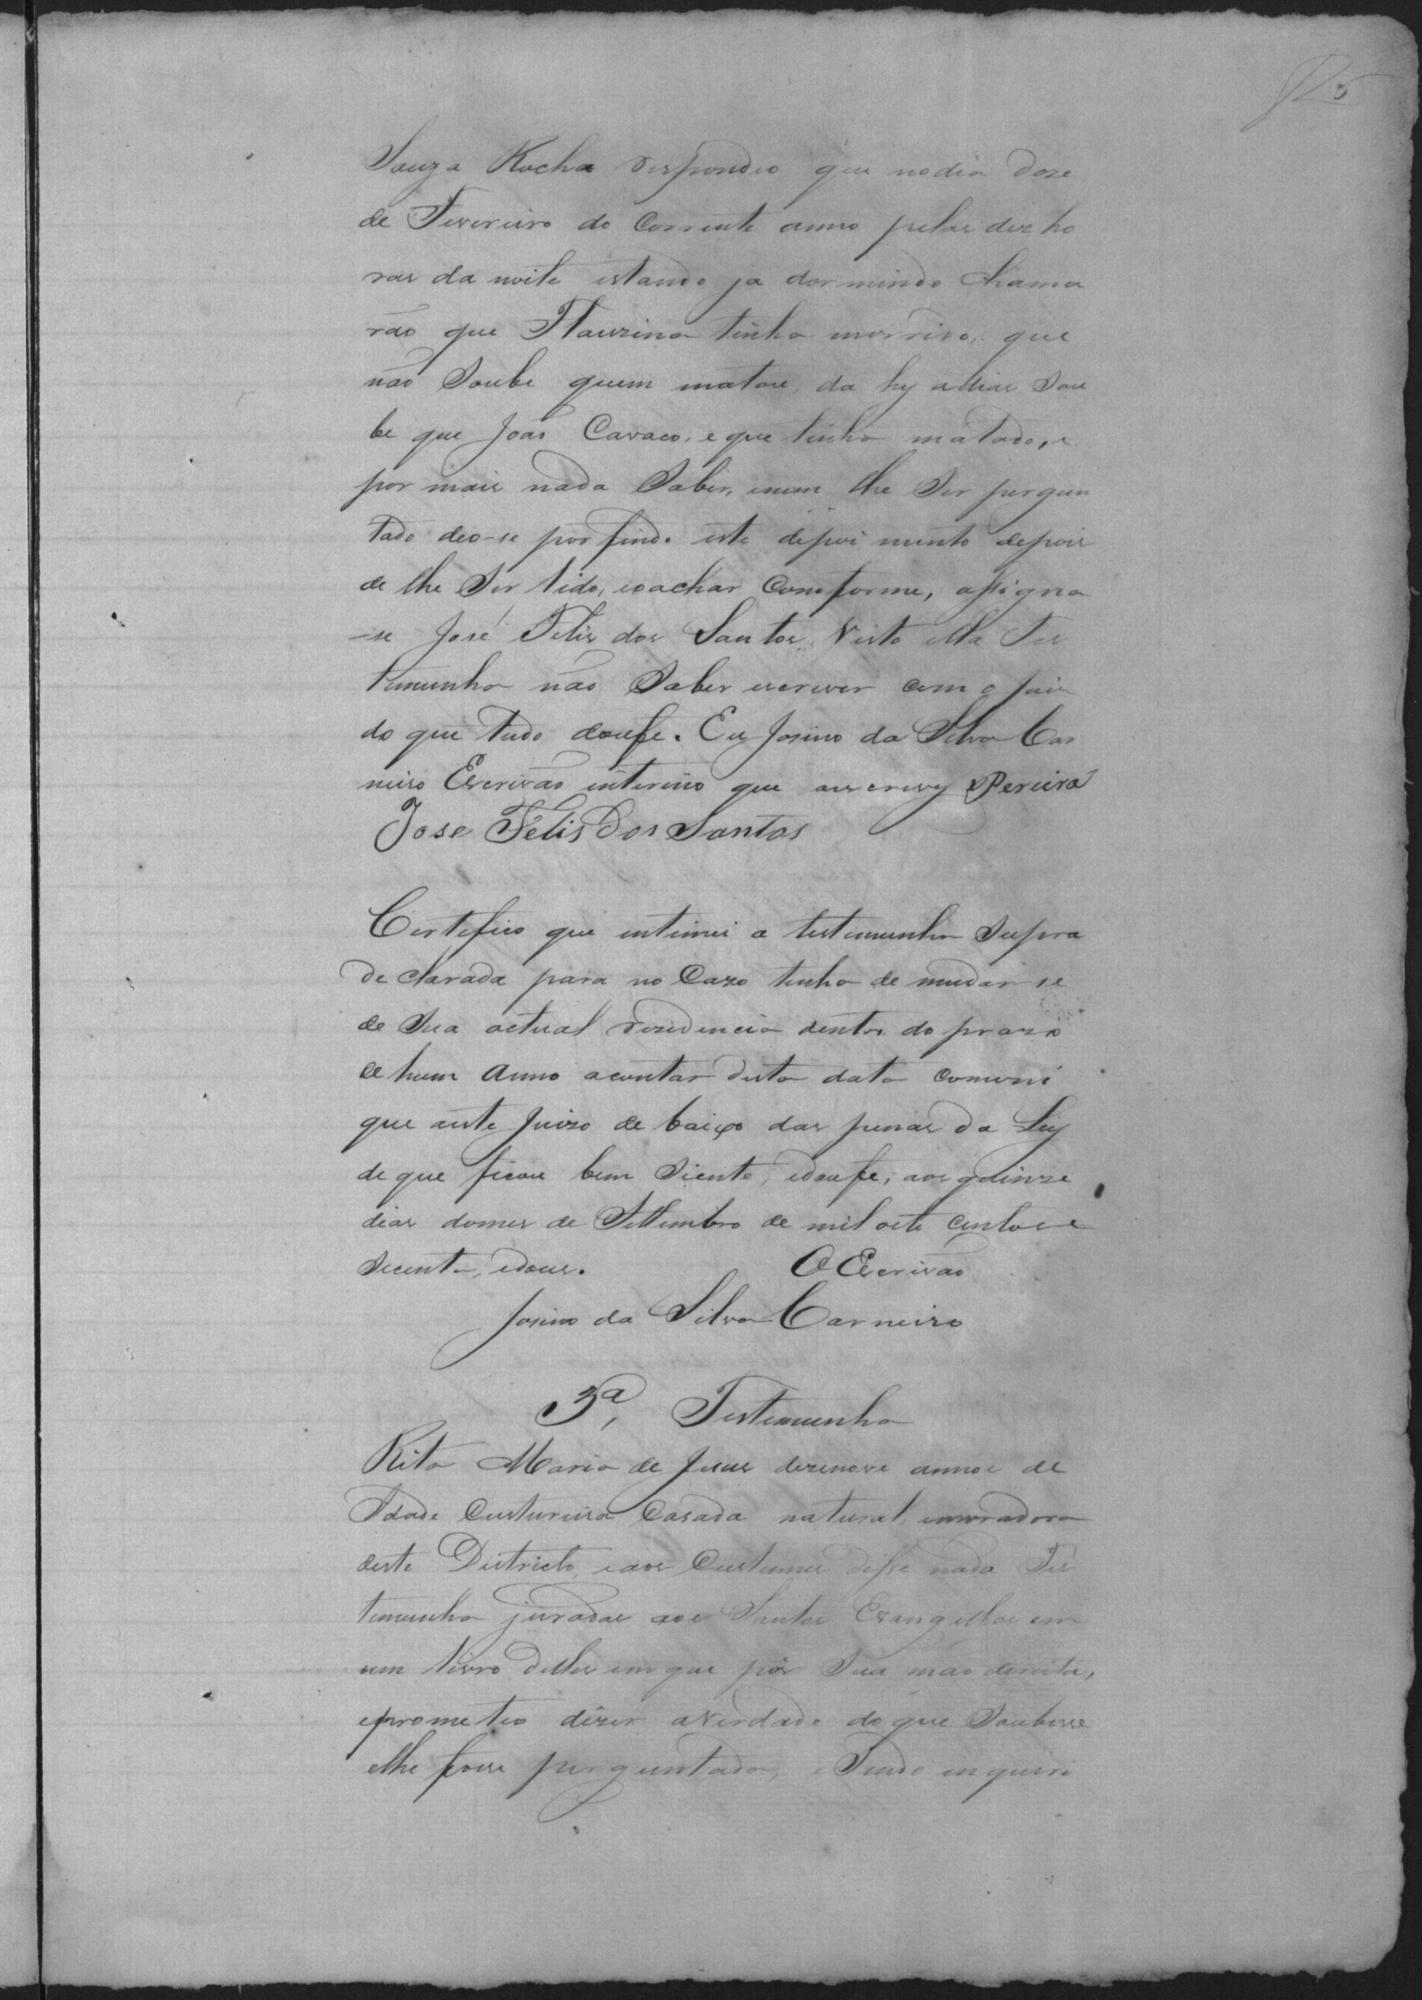 Souza Rocha respondeo que nodia doze
de Fevereiro do Corrente anno pelas dez ho
ras da noite estando ja dormindo Chama
rão que Flauzina tinha morrido, que
não Soube quem matou, da hy adias Sou
be que João Cavaco, e que tinha matado, e
por mais nada Saber, enem lhe Ser pergun
tado deo-se por findo este depoi mento depois
de lhe Ser lido, eoachar Comforme, assigna
-se José Felis dos Santos Visto ella Tes
temunha não Saber escrever com o Juiz
do que Tudo doufe. Eu Josino da Silva Car
neiro Escrivão interino que escrevy Pereira
Jose Felis Dos Santos
Certefico que entimei a testemunha Supra
de Clarada para no Cazo tenha de mudar-se
de Sua actual residencia dentro do prazo
de hum Anno acontar desta data comuni
que aeste Juizo de baixo das penas da Ley
de que ficou bem Siente, edoufe, aos quinze
dias domes de Settembro de mil oito centos e
Secenta, edous. O Escrivão
Josino da Silva Carneiro
3ª, Testemunha
Rita Maria de Jesus dezenove annos de
Idade Custureira Casada natural, emoradora
deste Districto, eaos Custumes disse nada Tes
temunha jurada aos Santos Evangelhos em
um livro delles em que pôs Sua mão direita,
eprometeo dizer averdade doque Soubesse
elhe fosse perguntado, eSendo enqueri